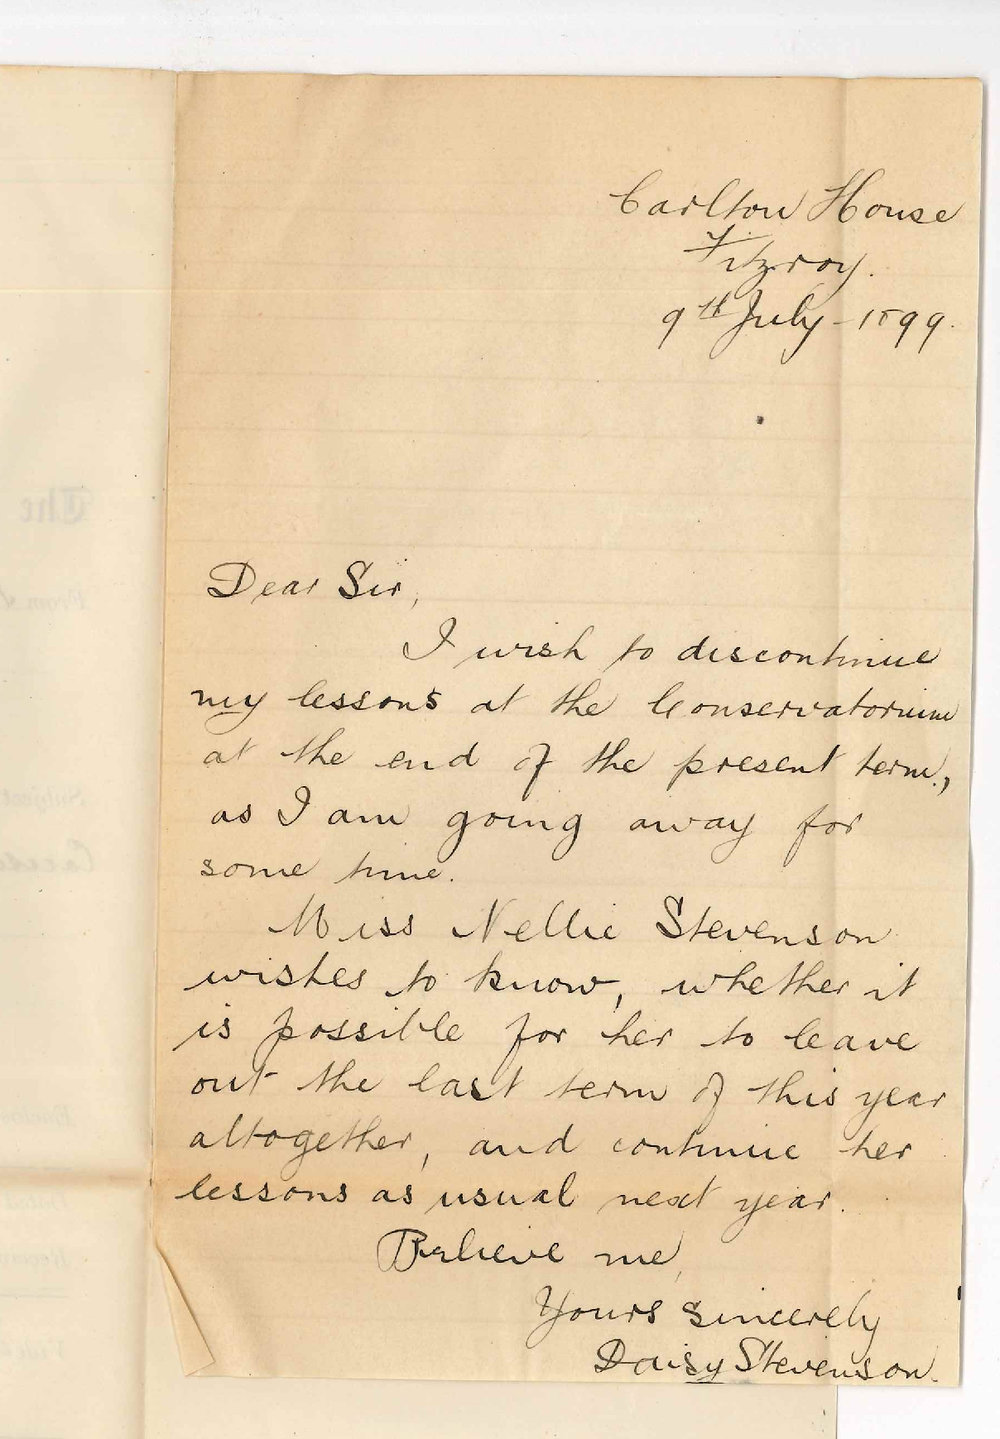 Carlton House
Fitzroy.
9th July - 1899.
Dear Sir,
I wish to discontinue
my lessons at the Conservatorium
at the end of the present term,
as I am going away for
some time.
Miss Nellie Stevenson
wishes to know, whether it
is possible for her to leave
out the last term of this year
altogether, and continue her
lessons as usual next year.
Believe me,
Yours sincerely
Daisy Stevenson.
The